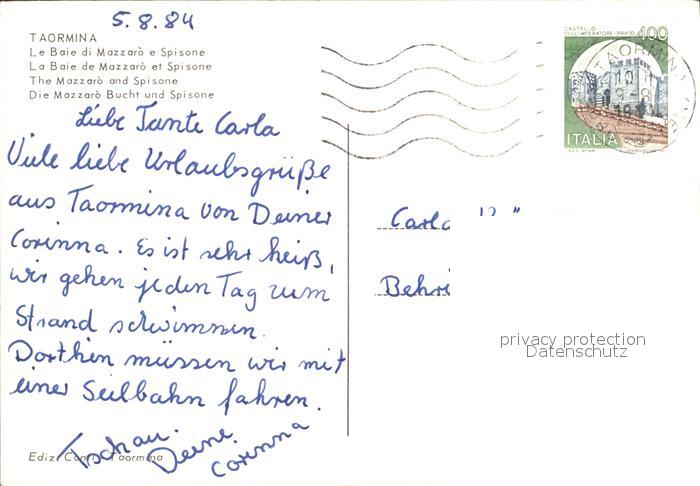 5.8.84
TAORMINA
Le Baie di Mazzarò e Spisone
La Baie de Mazzarò et Spisone
The Mazzarò and Spisone
Die Mazzarò Bucht und Spisone
Liebe Tante Carla
Viele liebe Urlaubsgrüße
aus Taormina von Deiner
Corinna. Es ist sehr heiß,
wir gehen jeden Tag zum
Strand schwimmen.
Dorthin müssen wir mit
einer Seilbahn fahren.
Tschau.
Deine
Corinna
Ediz. Taormina
CASTELLO
DELL'IMPERATORE - PRATO 400
TAORMINA
ITALIA
Carla
Behri
privacy protection
Datenschutz